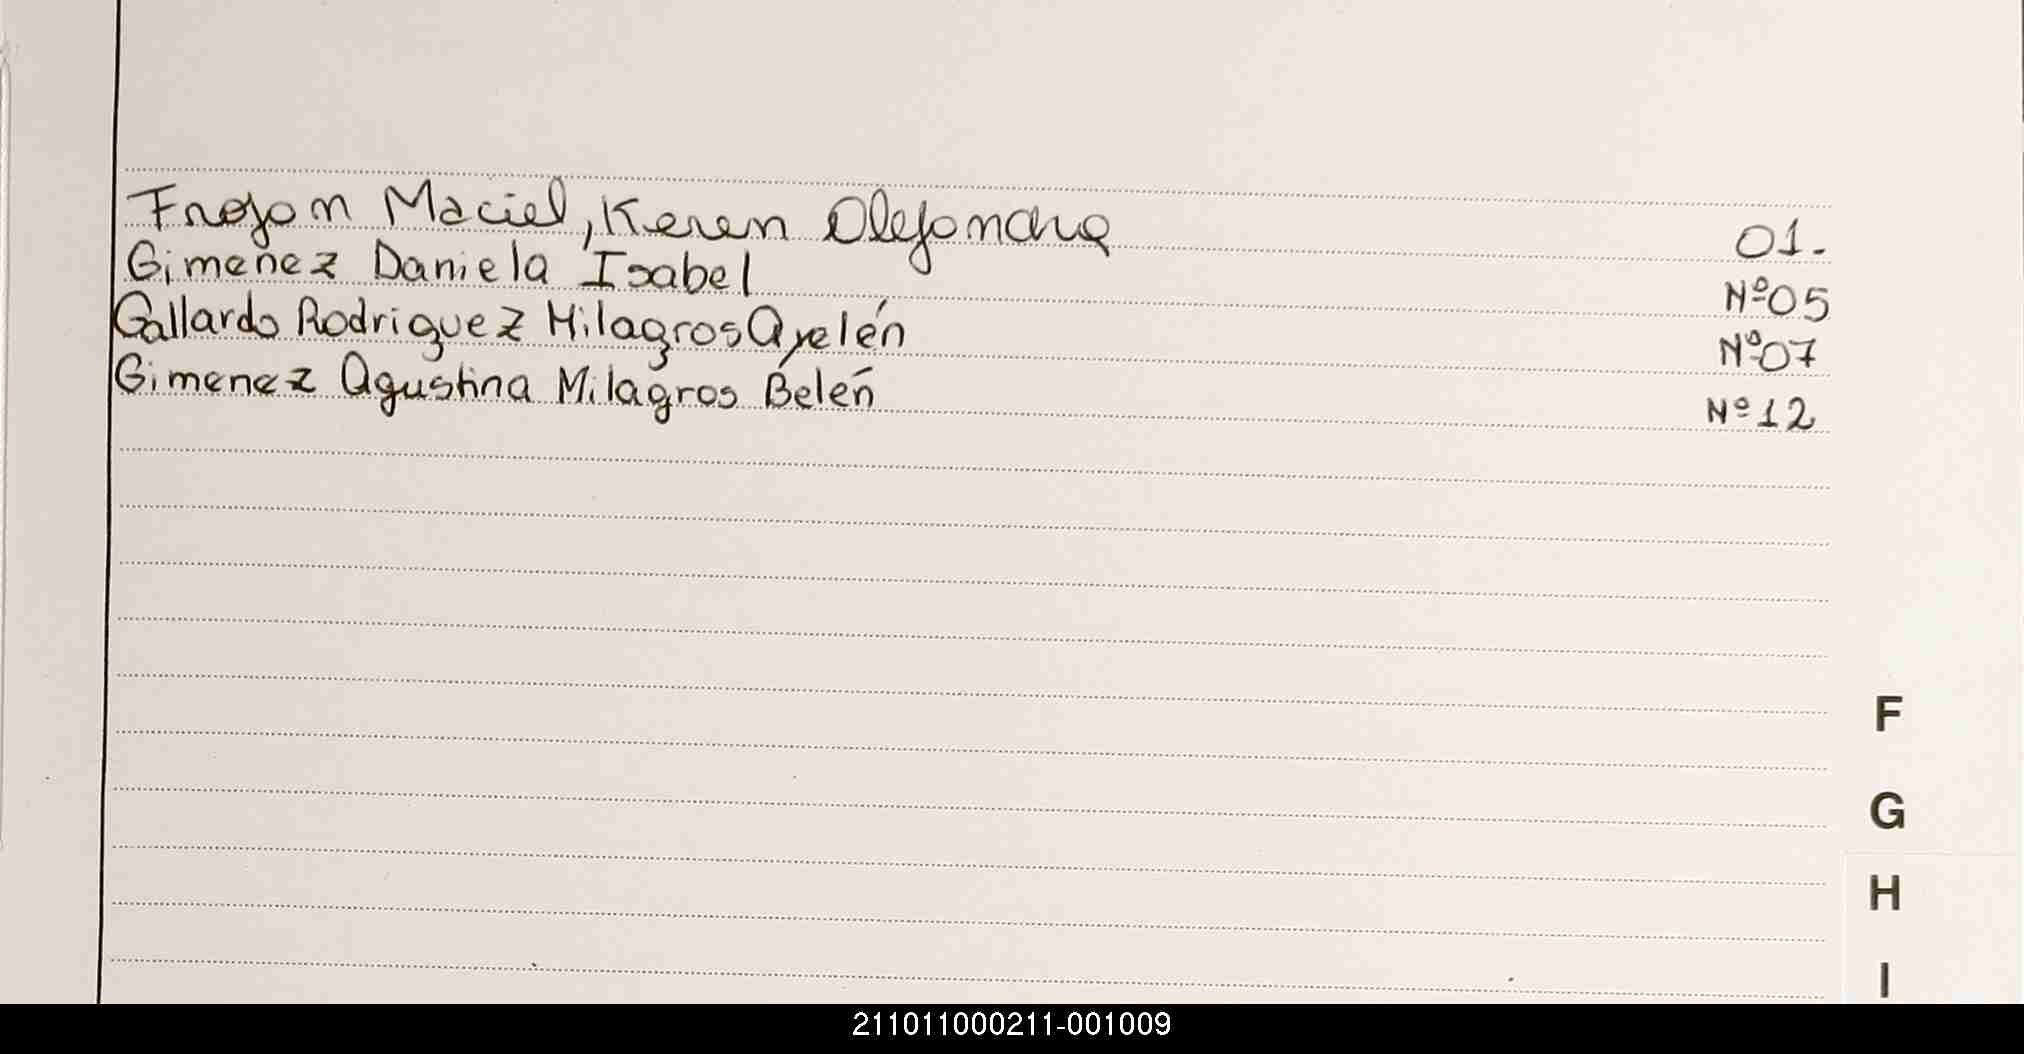 Frejon Maciel, Keren Alejandra 01.
Gimenez Daniela Isabel Nº05
Gallardo Rodriguez Milagros Ayelén Nº07
Gimenez Agustina Milagros Belén Nº12
F
G
H
I
211011000211-001009